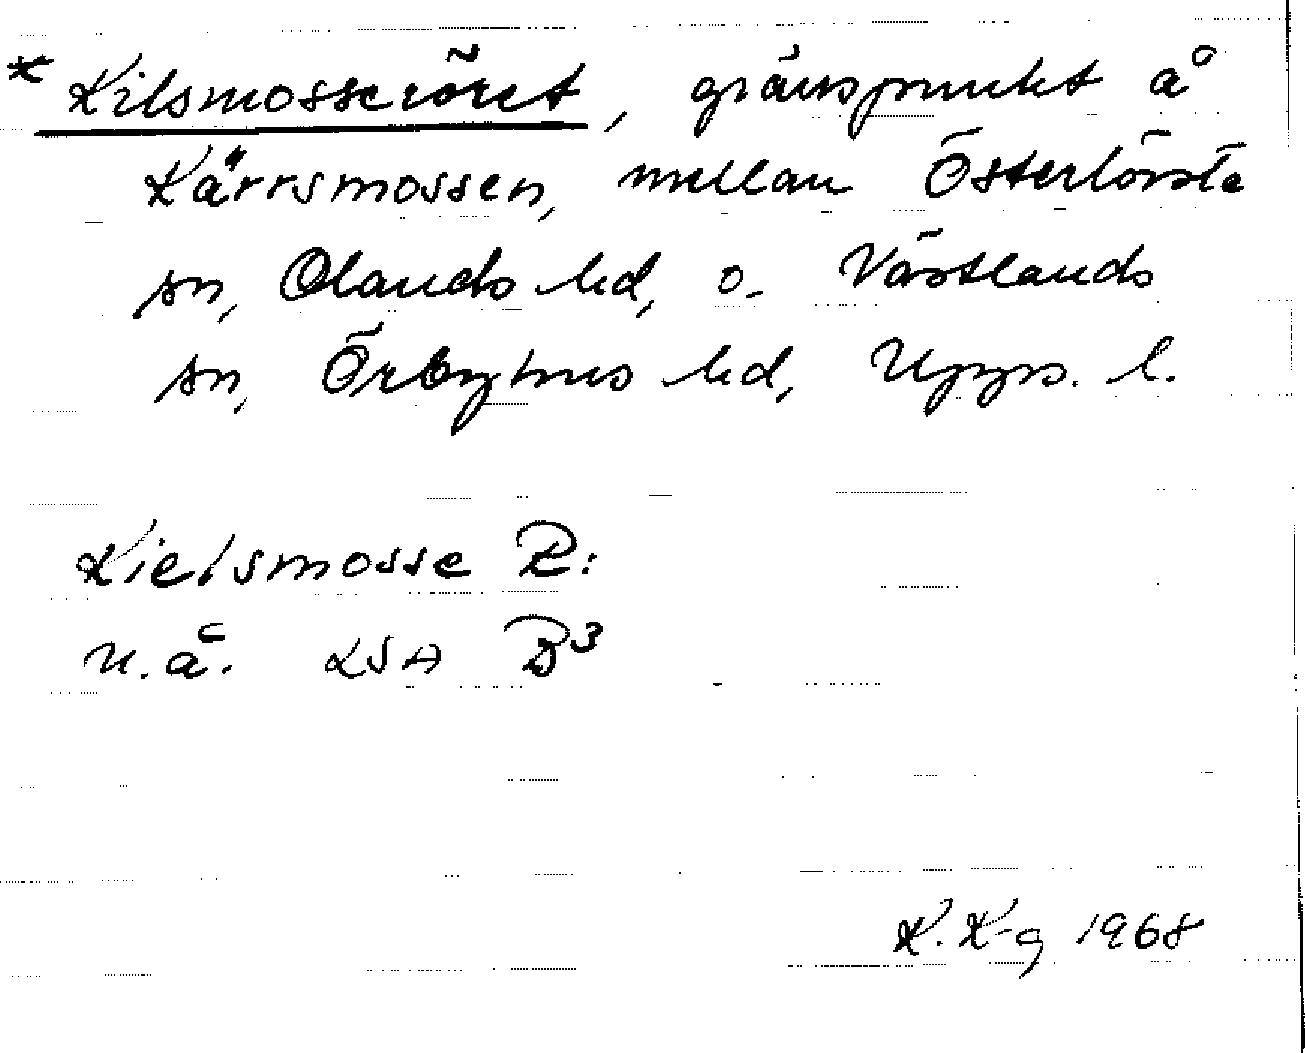 * Kilsmosseröret, gränspunkt å
Kärrsmossen, mellan Österlövsta
sn, Olands hd, o. Västlands
sn, Örbyhus hd, Upps. l.
Kielsmosse R:
u.å. LSA B³
K. K-g 1968